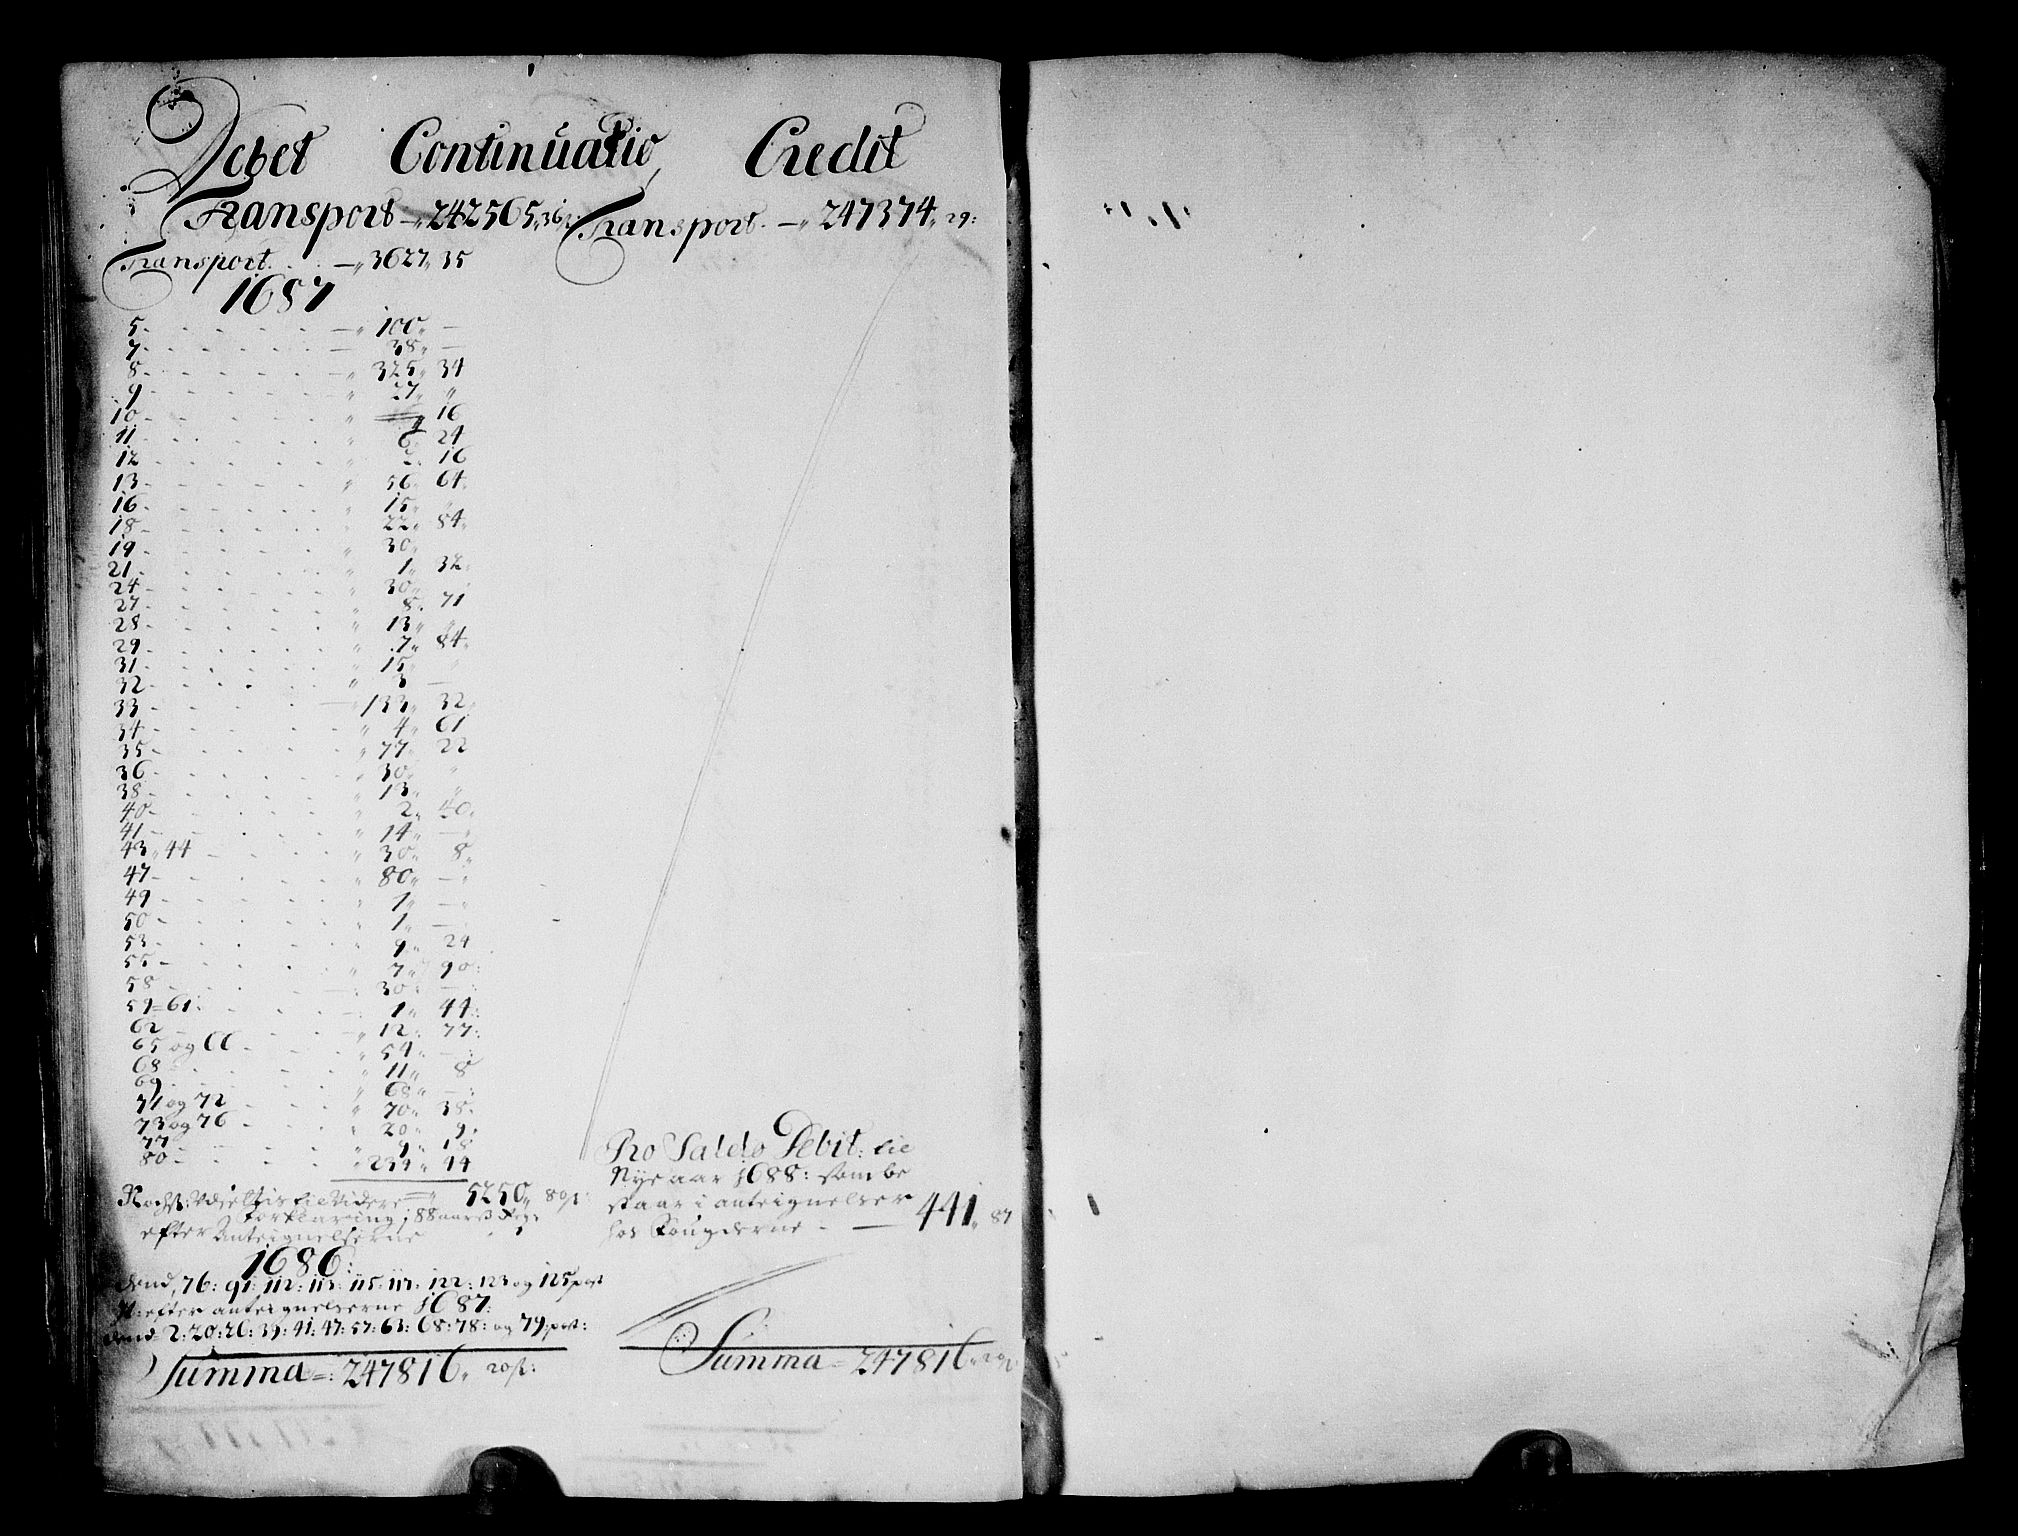 Debet Continuatio, Credit
Transport 242565 36
Transport 247374 29:
Transport 3627 35
1687
5 100
7 38
8 325 34
9 27
10 16
11 6 24
12 2 16
13 56 64
16 15
18 22 84
19 30
21 1 32
24 30
27 8 71
28 13
29 7 84
31 15
32 3
33 133 32
34 4 61
35 77 22
36 30
38 13
40 2 40
41 14
43, 44 30 8
47 80
49 1
50 1
53 9 24
55 7 90
58 30
59=61: 1 44
62 12 77
65 og 66 54
68 11 8
69 68
71 og 72 70 38
73 og 76 20 9
77 9 18
80 234 44
5250 80
Forklaring
efter Anteignelserne
1686:
76: 91: 112: 113: 115: 122: 123 og 125
efter anteignelserne 1687:
2: 20: 26: 39: 41: 47: 57: 63: 68: 78: og 79
Summa 247816 20
Pro Saldo Debit: til
Nye aar 1688: som be
staar i anteignelser
hos 441 87
Summa 247816